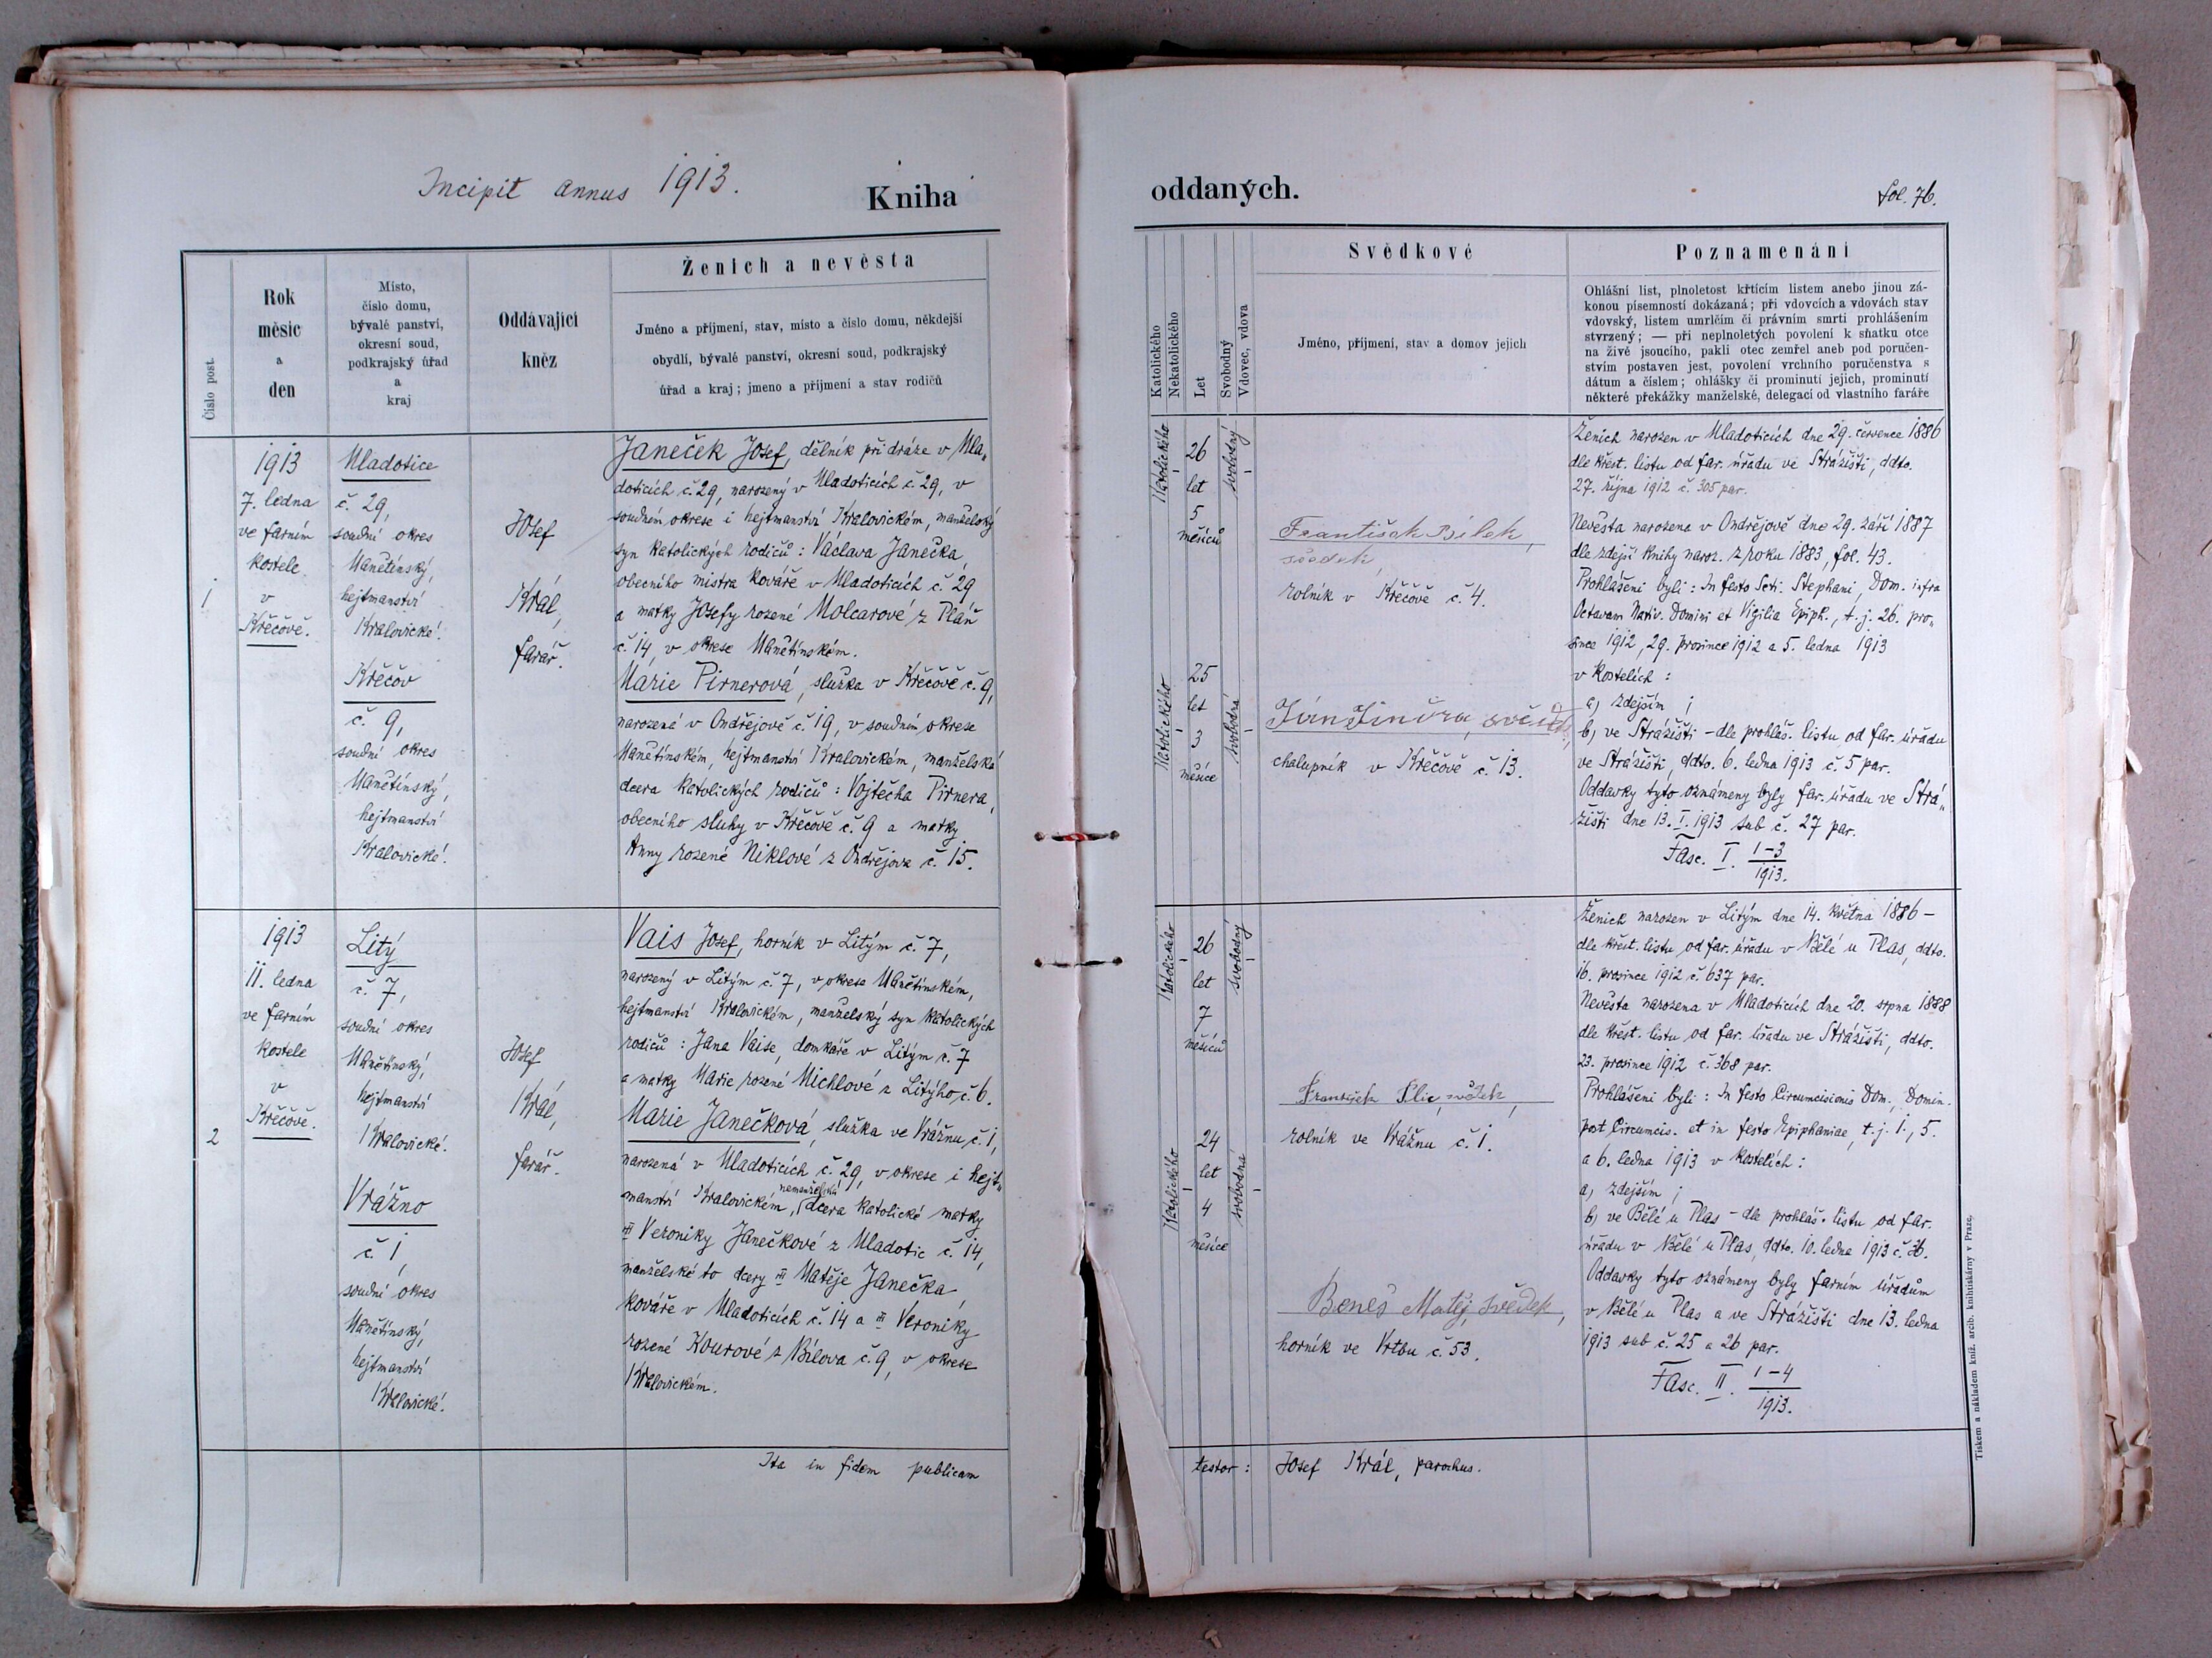 Incipit annus 1913.
Kniha
Číslo post.
Rok
měsíc
a
den
Místo,
číslo domu,
bývalé panství,
okresní soud,
podkrajský úřad
a
kraj
Oddávající
kněz
Ženich a nevěsta
Jméno a příjmení, stav, místo a číslo domu, někdejší
obydlí, bývalé panství, okresní soud, podkrajský
úřad a kraj; jmeno a příjmení a stav rodičů
1
1913
7. ledna
ve farním
kostele
v
Křečově.
Mladotice
č. 29,
soudní okres
Manětínský,
hejtmanství
Kralovické.
Křečov
č. 9,
soudní okres
Manětínský,
hejtmanství
Kralovické.
Josef
Král,
farář.
Janeček Josef, dělník při dráze v Mla„
doticích č. 29, narozený v Mladoticích č. 29, v
soudním okrese i hejtmanství Kralovickém, manželský
syn katolických rodičů: Václava Janečka,
obecního mistra kováře v Mladoticích č. 29
a matky Josefy rozené Molcarové z Pláň
č. 14, v okrese Manětínském.
Marie Pirnerová, služka v Křečově č. 9,
narozená v Ondřejově č. 19, v soudním okrese
Manětínském, hejtmanství Kralovickém, manželská
dcera katolických rodičů: Vojtěcha Pirnera,
obecního sluhy v Křečově č. 9 a matky
Anny rozené Niklové z Ondřejova č. 15.
2
1913
11. ledna
ve farním
kostele
v
Křečově.
Litý
č. 7,
soudní okres
Manětínský,
hejtmanství
Kralovické.
Vrážno
č. 1,
soudní okres
Manětínský,
hejtmanství
Kralovické.
Josef
Král,
farář.
Vais Josef, horník v Litým č. 7,
narozený v Litým č. 7, v okrese Manětínském,
hejtmanství Kralovickém, manželský syn katolických
rodičů: Jana Vaise, domkáře v Litým č. 7
a matky Marie rozené Michlové z Litýho č. 6.
Marie Janečková, služka ve Vrážnu č. 1,
narozená v Mladoticích č. 29, v okrese i hejt„
manství Kralovickém, nemanželská dcera katolické matky
Veroniky Janečkové z Mladotic č. 14,
manželské to dcery Matěje Janečka,
kováře v Mladoticích č. 14 a Veroniky
rozené Kourové z Bílova č. 9, v okrese
Kralovickém.
Ita in fidem publicam
oddaných.
fol. 76.
Katolického
Nekatolického
Let
Svobodný
Vdovec, vdova
Svědkové
Jméno, příjmení, stav a domov jejich
Poznamenání
Ohlášní list, plnoletost křtícím listem anebo jinou zá-
konou písemností dokázaná; při vdovcích a vdovách stav
vdovský, listem umrlčím či právním smrti prohlášením
stvrzený; — při neplnoletých povolení k sňatku otce
na živě jsoucího, pakli otec zemřel aneb pod poručen-
stvím postaven jest, povolení vrchního poručenstva s
dátum a číslem; ohlášky či prominutí jejich, prominutí
některé překážky manželské, delegací od vlastního faráře
Katolického
26
let
5
měsíců
svobodný
František Bílek,
svědek,
rolník v Křečově č. 4.
Katolického
25
let
3
měsíce
svobodná
chalupník v Křečově č. 13.
Ženich narozen v Mladoticích dne 29. července 1886
dle křest. listu od far. úřadu ve Strážišti, ddto.
27. října 1912 č. 305 par.
Nevěsta narozena v Ondřejově dne 29. září 1887
dle zdejší knihy naroz. z roku 1883, fol. 43.
Prohlášeni byli: In festo Scti. Stephani, Dom. infra
Octavam Nativ. Domini et Vigilia Epiph., t. j. 26. pro„
since 1912, 29. prosince 1912 a 5. ledna 1913
v kostelích:
a, zdejším;
b, ve Strážišti - dle prohláš. listu od far. úřadu
ve Strážišti, ddto. 6. ledna 1913 č. 5 par.
Oddavky tyto oznámeny byly far. úřadu ve Strá„
žišti dne 13. I. 1913 sub č. 27 par.
Fasc. I. 1-3
1913.
Katolického
26
let
7
měsíců
svobodný
rolník ve Vrážnu č. 1.
Katolického
24
let
4
měsíce
svobodná
Beneš Matěj, svědek,
horník ve Vrtbu č. 53.
Ženich narozen v Litým dne 14. května 1886 -
dle křest. listu od far. úřadu v Bělé u Plas, ddto.
16. prosince 1912 č. 637 par.
Nevěsta narozena v Mladoticích dne 20. srpna 1888
dle křest. listu od far. úřadu ve Strážišti, ddto.
23. prosince 1912 č. 368 par.
Prohlášeni byli: In festo Circumcisionis Dom., Domin.
post Circumcis. et in festo Epiphaniae, t. j. 1., 5.
a 6. ledna 1913 v kostelích:
a, zdejším;
b, ve Bělé u Plas - dle prohláš. listu od far.
úřadu v Bělé u Plas, ddto. 10. ledna 1913 č.
Oddavky tyto oznámeny byly farním úřadům
v Bělé u Plas a ve Strážišti dne 13. ledna
1913 sub č. 25 a 26 par.
Fasc. II. 1-4
1913.
testor: Josef Král, parochus.
Tiskem a nákladem kníž. arcib. knihtiskárny v Praze.